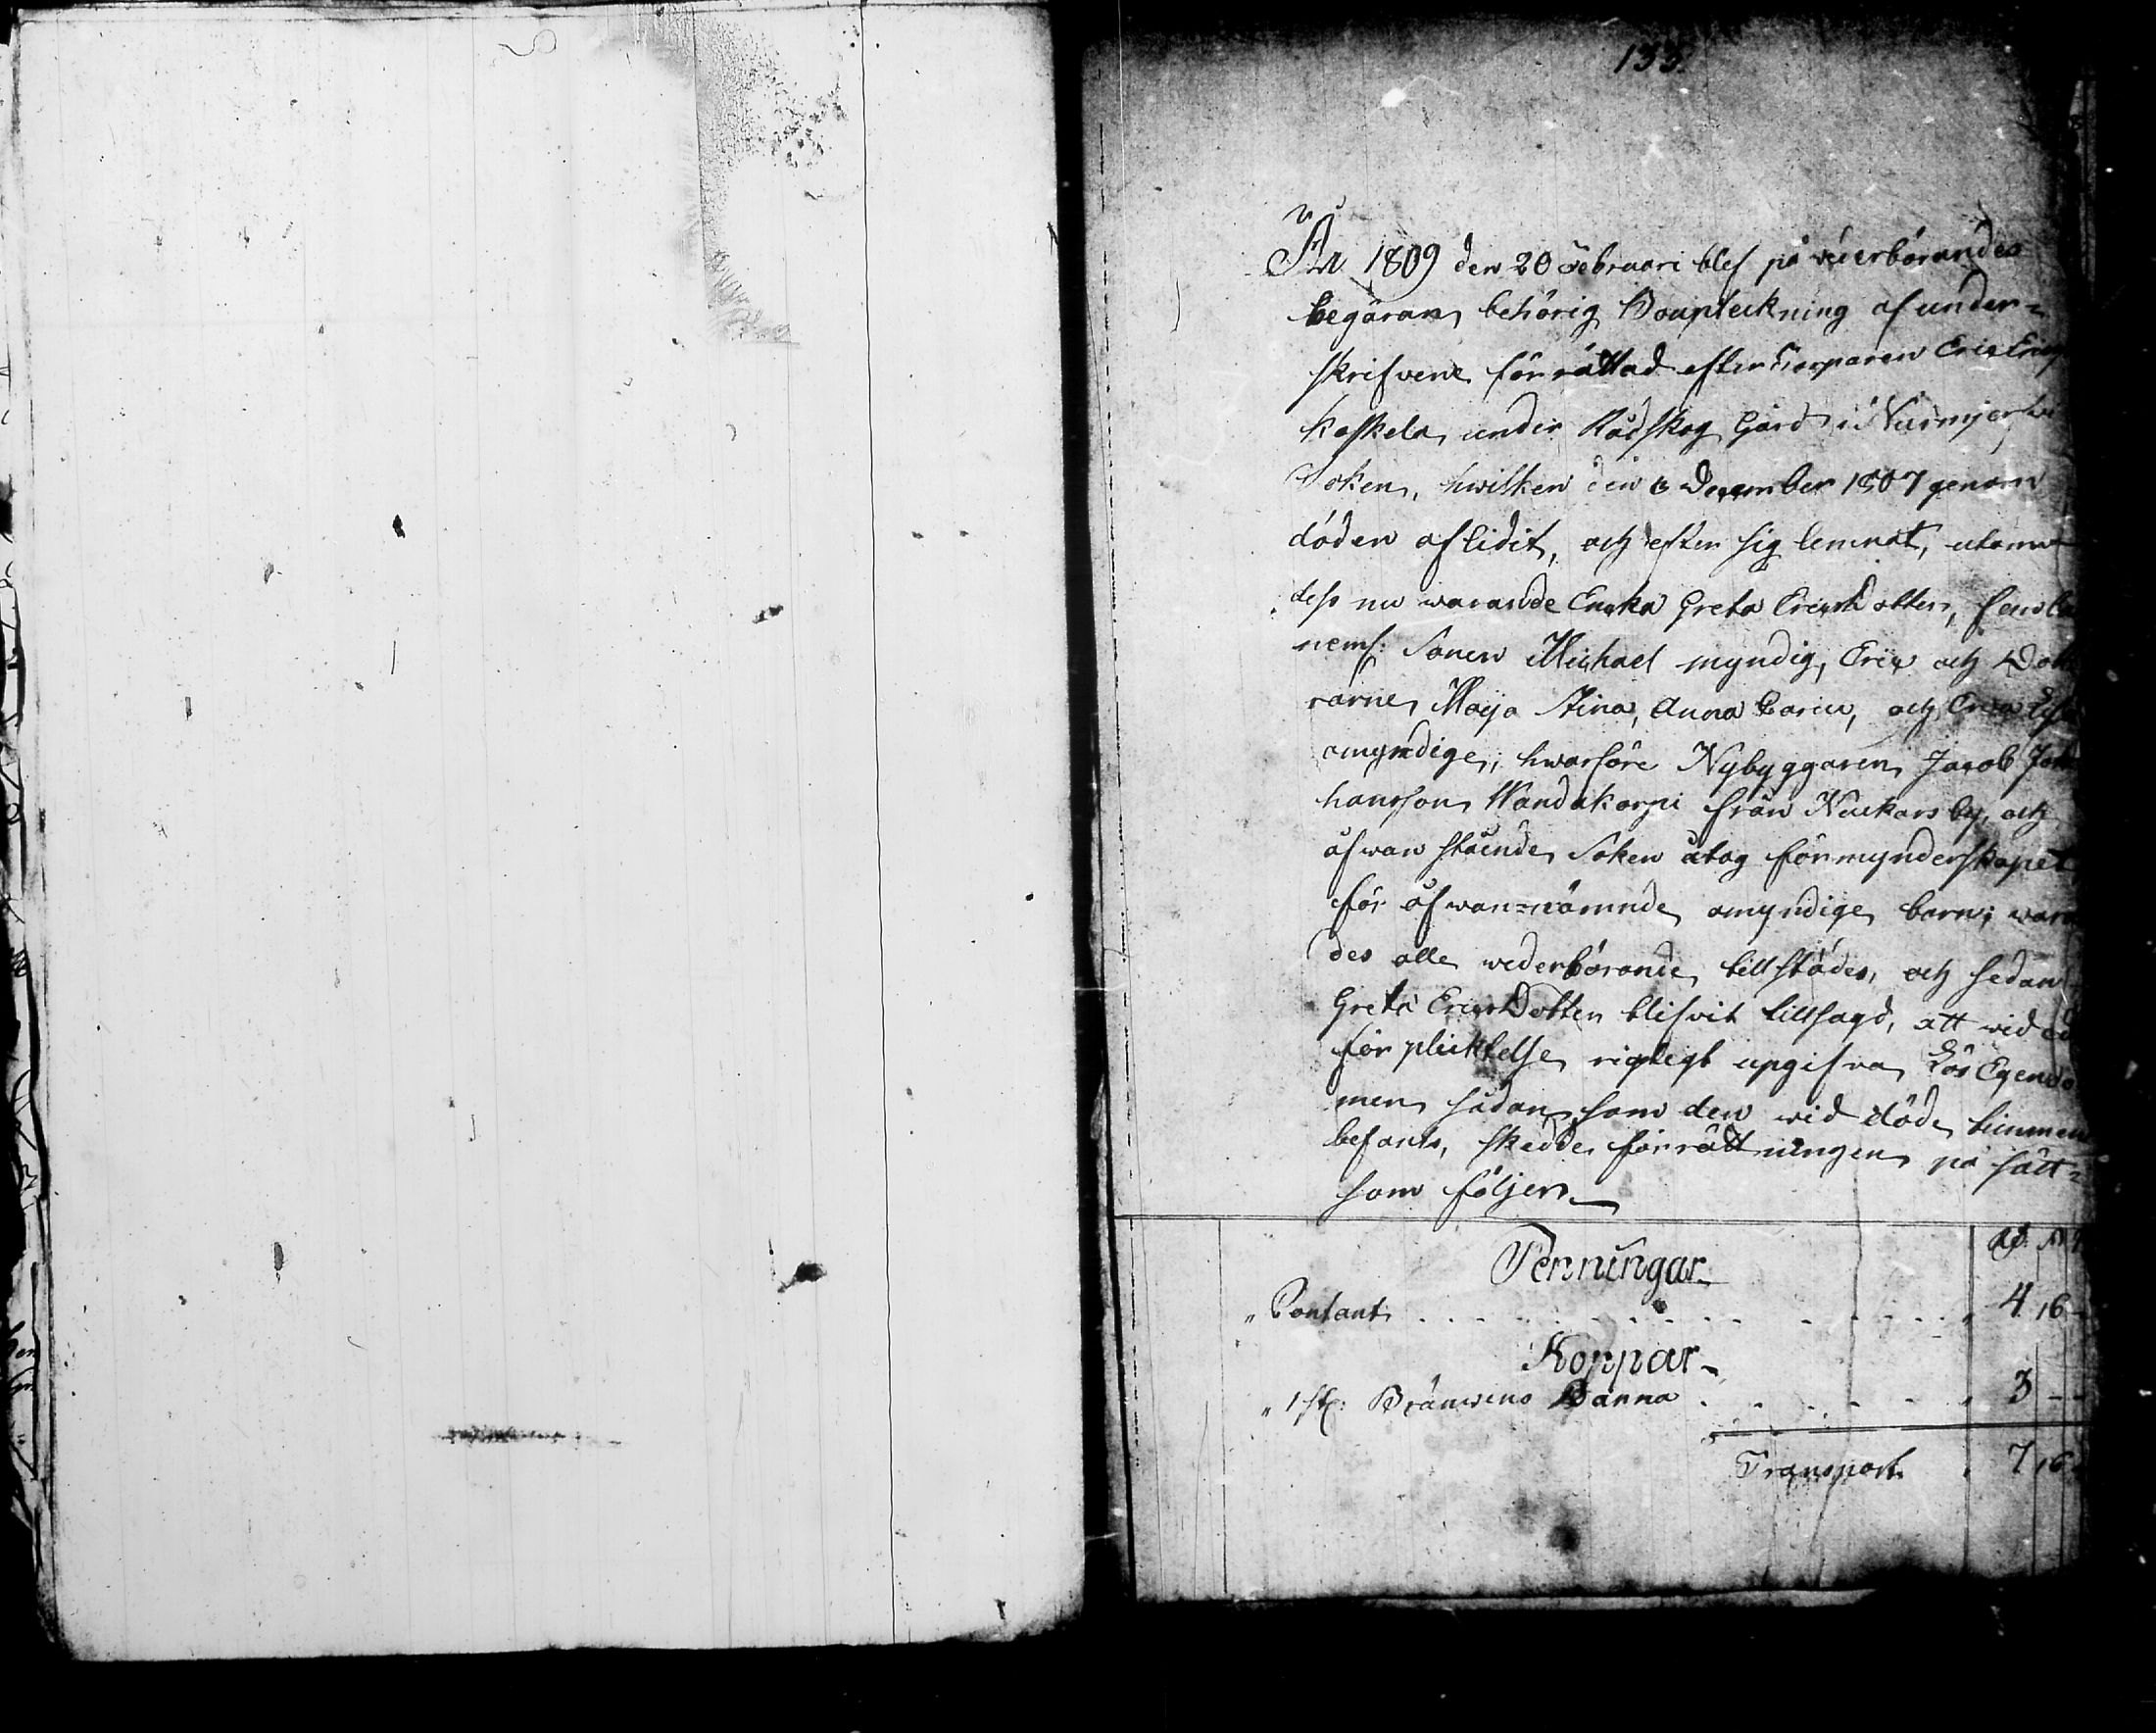 133.
År 1809 den 20 Februari blef på wederbörandes
begäran behörig Bouptekning af under=
skrifvene förrättad efter Torparen Eric Erics
Koskela under Rådskog Gård i Nurmjerwi
Soken, hwilken den 6 December 1807 genom
döden aflidit, och efter sig lemnat, utom
dess nu warande Enka Greta EricsDotter, fem ba
neml: Sonen Michael myndig, Eric och Dött
rarne Maja Stina, Anna Carin, och Lisa
omyndige; hwarföre Nybyggaren Jacob Jo
hansson Wandakorpi från Nuckars by, och
ofwan stående Soken åtog förmynderskapet
för ofwan=nämnde omyndige barn; waran
des alle wederbörande tillstädes, och sedan
Greta EricsDotter blifvit tillsagd, att wid ed
förpliktelse rigtigt upgifva Lös Egendo
men sådan som den wid döds timmen
befants, skedde förrättningen på sätt=
som följer
Penningar
" Contant . . . . . . . . . . 4 16 -
Koppar
" 1 st: Bränwins Panna . . . . . . 3 - -
Transport 7 16